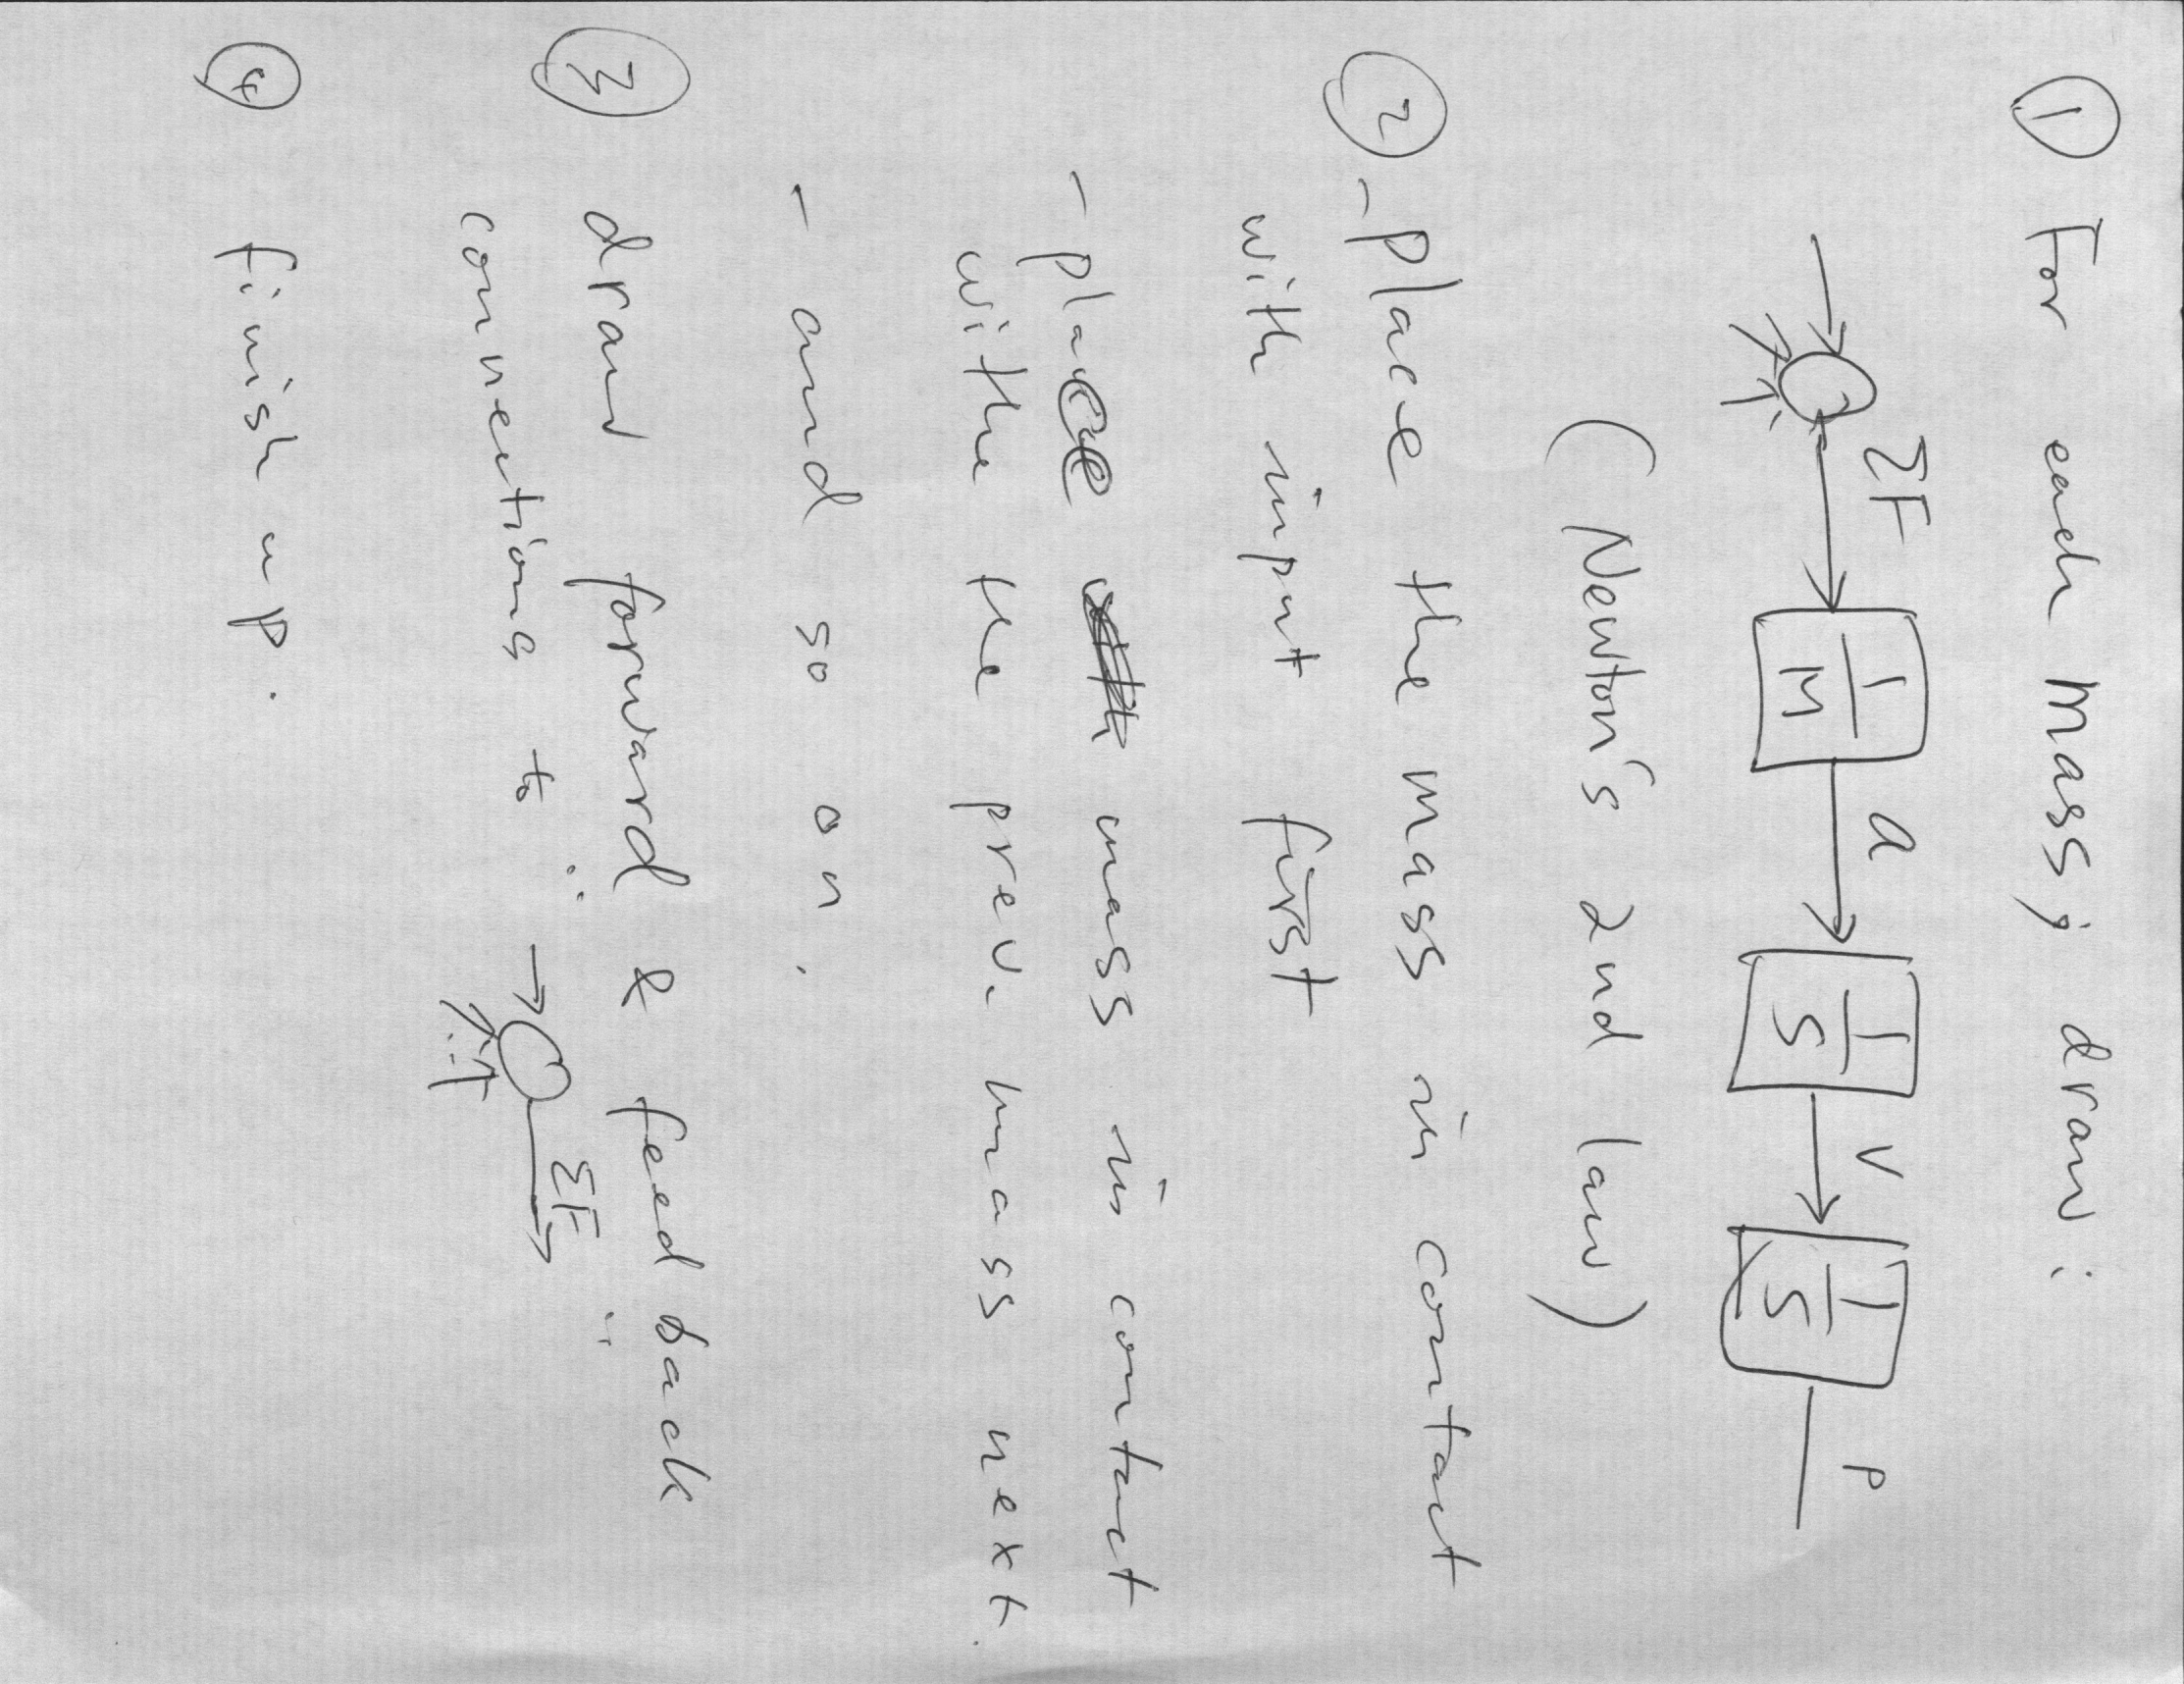 ① For each mass, draw:
ΣF 1/M a 1/S v 1/S p
(Newton's 2nd law)
② - place the mass in contact
with input first
- place mass in contact
with the prev. mass next.
- and so on.
③ draw forward & feedback
connections to " ΣF "
④ finish up.